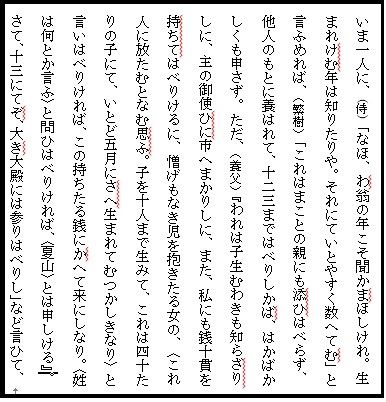 いま一人に、〈侍〉「なほ、わ翁の年こそ聞かまほしけれ。生
まれけむ年は知りたりや。それにていとやすく数へてむ」と
言ふめれば、〈繁樹〉「これはまことの親にも添ひはべらず、
他人のもとに養はれて、十二三まではべりしかば、はかばか
しくも申さず。ただ、〈養父〉『われは子生むわきも知らざり
しに、主の御使ひに市へまかりしに、また、私にも銭十貫を
持ちてはべりけるに、憎げもなき児を抱きたる女の、〈これ
人に放たむとなむ思ふ。子を十人まで生みて、これは四十た
りの子にて、いとど五月にさへ生まれてむつかしきなり〉と
言いはべりければ、この持ちたる銭にかへて来にしなり。〈姓
は何とか言ふ〉と問ひはべりければ、〈夏山〉とは申しける』。
さて、十三にてぞ、大き大殿には参りはべりし」など言ひて、